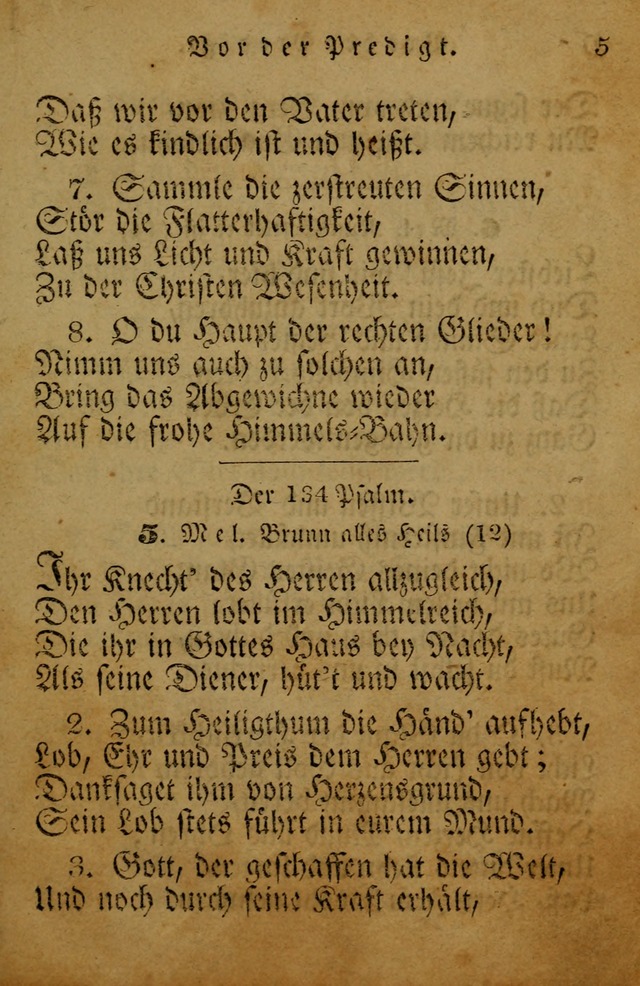 Vor der Predigt. 5
Daß wir vor den Vater treten,
Wie es kindlich ist und heißt.
7. Sammle die zerstreuten Sinnen,
Stör die Flatterhaftigkeit,
Laß uns Licht und Kraft gewinnen,
Zu der Christen Wesenheit.
8. O du Haupt der rechten Glieder!
Nimm uns auch zu solchen an,
Bring das Abgewichne wieder
Auf die frohe Himmels-Bahn.
Der 134 Psalm.
5. Mel. Brunn alles Heils (12)
Ihr Knecht' des Herren allzugleich,
Den Herren lobt im Himmelreich,
Die ihr in Gottes Haus bey Nacht,
Als seine Diener, hüt't und wacht.
2. Zum Heiligthum die Händ' aufhebt,
Lob, Ehr und Preis dem Herren gebt;
Danksaget ihm von Herzensgrund,
Sein Lob stets führt in eurem Mund.
3. Gott, der geschaffen hat die Welt,
Und noch durch seine Kraft erhält,